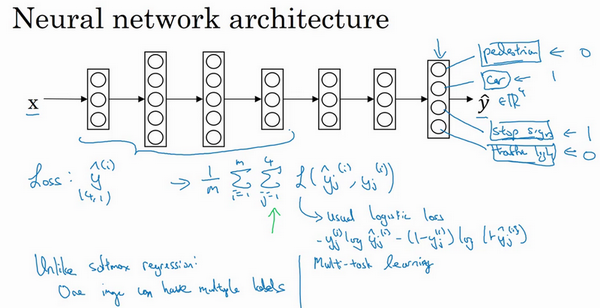 Neural network architecture
pedestrian ← 0
car ← 1
x
ŷ ∈ ℝ⁴
stop sign ← 1
traffic light ← 0
Loss: ŷ^(i) → 1/m Σ_{i=1}^{m} Σ_{j=1}^{4} L(ŷ_j^(i), y_j^(i))
(4,1)
usual logistic loss
- y_j^(i) log ŷ_j^(i) - (1-y_j^(i)) log (1-ŷ_j^(i))
Unlike softmax regression:
One image can have multiple labels
Multi-task learning